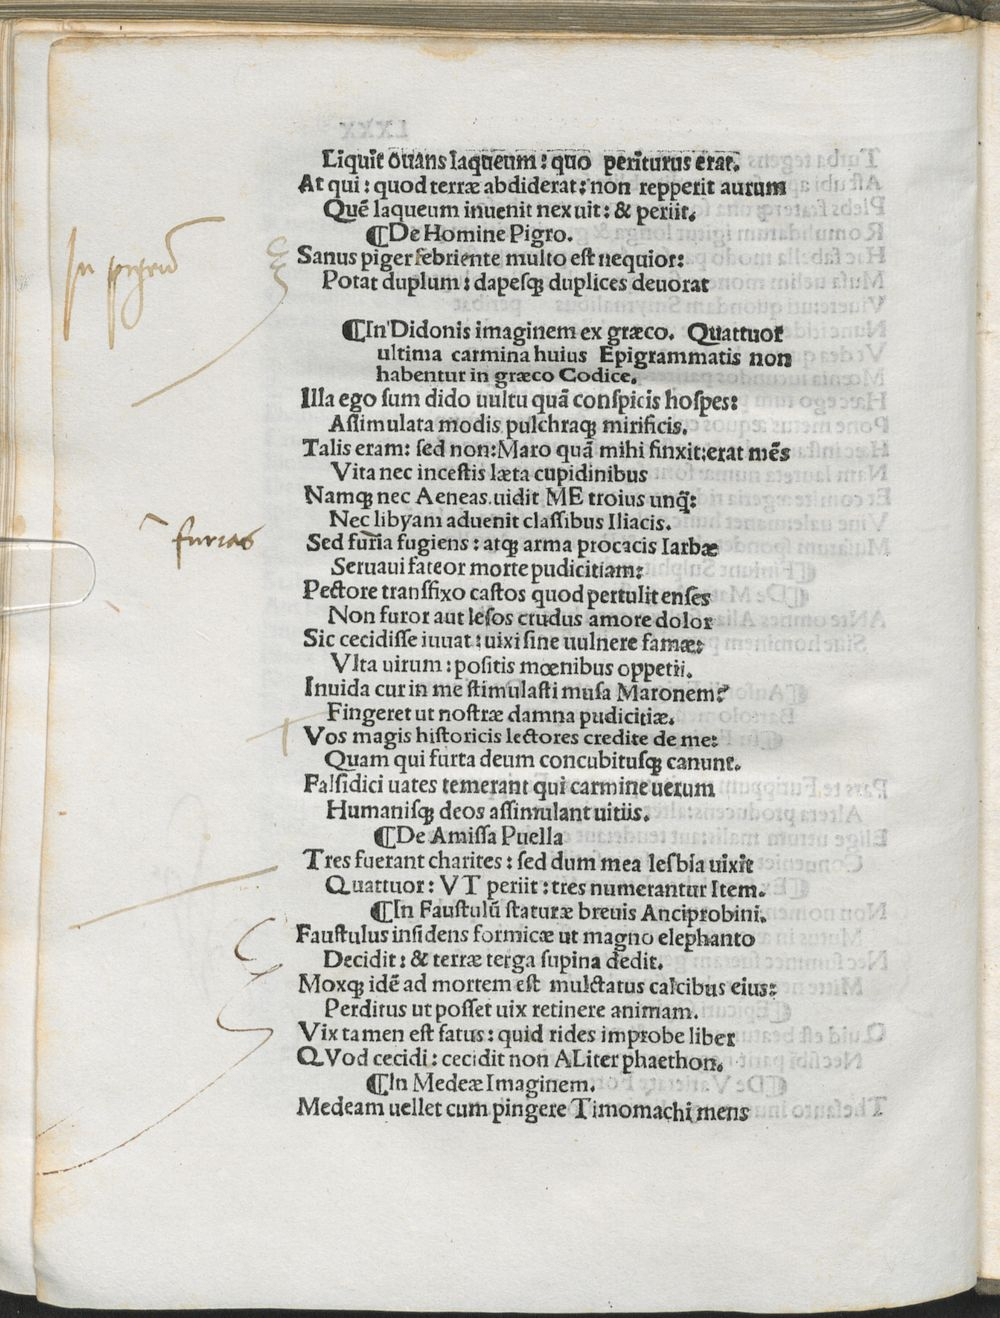 Liquit ouans laqueum : quo periturus erat.
At qui : quod terræ abdiderat : non repperit aurum
Quē laqueum inuenit nexuit : & periit.
¶De Homine Pigro.
In pigrū
Sanus piger febriente multo est nequior:
Potat duplum : dapesq; duplices deuorat
¶In Didonis imaginem ex græco. Quattuor
ultima carmina huius Epigrammatis non
habentur in græco Codice.
Illa ego sum dido uultu quā conspicis hospes:
Assimulata modis pulchraq; mirificis.
Talis eram : sed non : Maro quā mihi finxit : erat mēs
Vita nec incestis læta cupidinibus
Namq; nec Aeneas uidit ME troius unq̄:
Nec libyam aduenit classibus Iliacis.
furias
Sed furia fugiens : atq; arma procacis Iarbæ
Seruaui fateor morte pudicitiam:
Pectore transfixo castos quod pertulit enses
Non furor aut lesos crudus amore dolor
Sic cecidisse iuuat : uixi sine uulnere famæ:
Vlta uirum : positis mœnibus oppetii.
Inuida cur in me stimulasti musa Maronem?
Fingeret ut nostræ damna pudicitiæ.
Vos magis historicis lectores credite de me:
Quam qui furta deum concubitusq; canunt.
Falsidici uates temerant qui carmine uerum
Humanisq; deos assimulant uitiis.
¶De Amissa Puella
Tres fuerant charites : sed dum mea lesbia uixit
Quattuor : VT periit : tres numerantur Item.
¶In Faustulū staturæ breuis Anciprobini.
Faustulus insidens formicæ ut magno elephanto
Decidit : & terræ terga supina dedit.
Moxq; idē ad mortem est mulctatus calcibus eius:
Perditus ut posset uix retinere animam.
Vix tamen est fatus : quid rides improbe liber
QVod cecidi : cecidit non ALiter phaethon.
¶In Medeæ Imaginem.
Medeam uellet cum pingere Timomachi mens